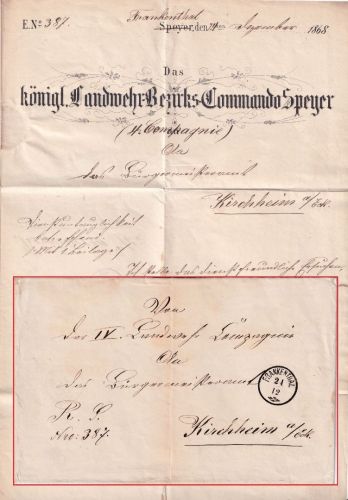 Frankenthal
E. No 387. Speyer, den 24ten Dezember 1868
Das
königl. Landwehr-Bezirks-Commando Speyer
(4. Compagnie)
An
das Bürgermeisteramt
Kirchheim a/Eck.
Dienstuntauglichkeit
betreffend
Ich stelle das dienstfreundliche Ersuchen,
Von
der IV. Landwehr Compagnie
An
das Bürgermeisteramt
R. S.
Nro. 387.
Kirchheim a/Eck.
FRANKENTHAL
21
12